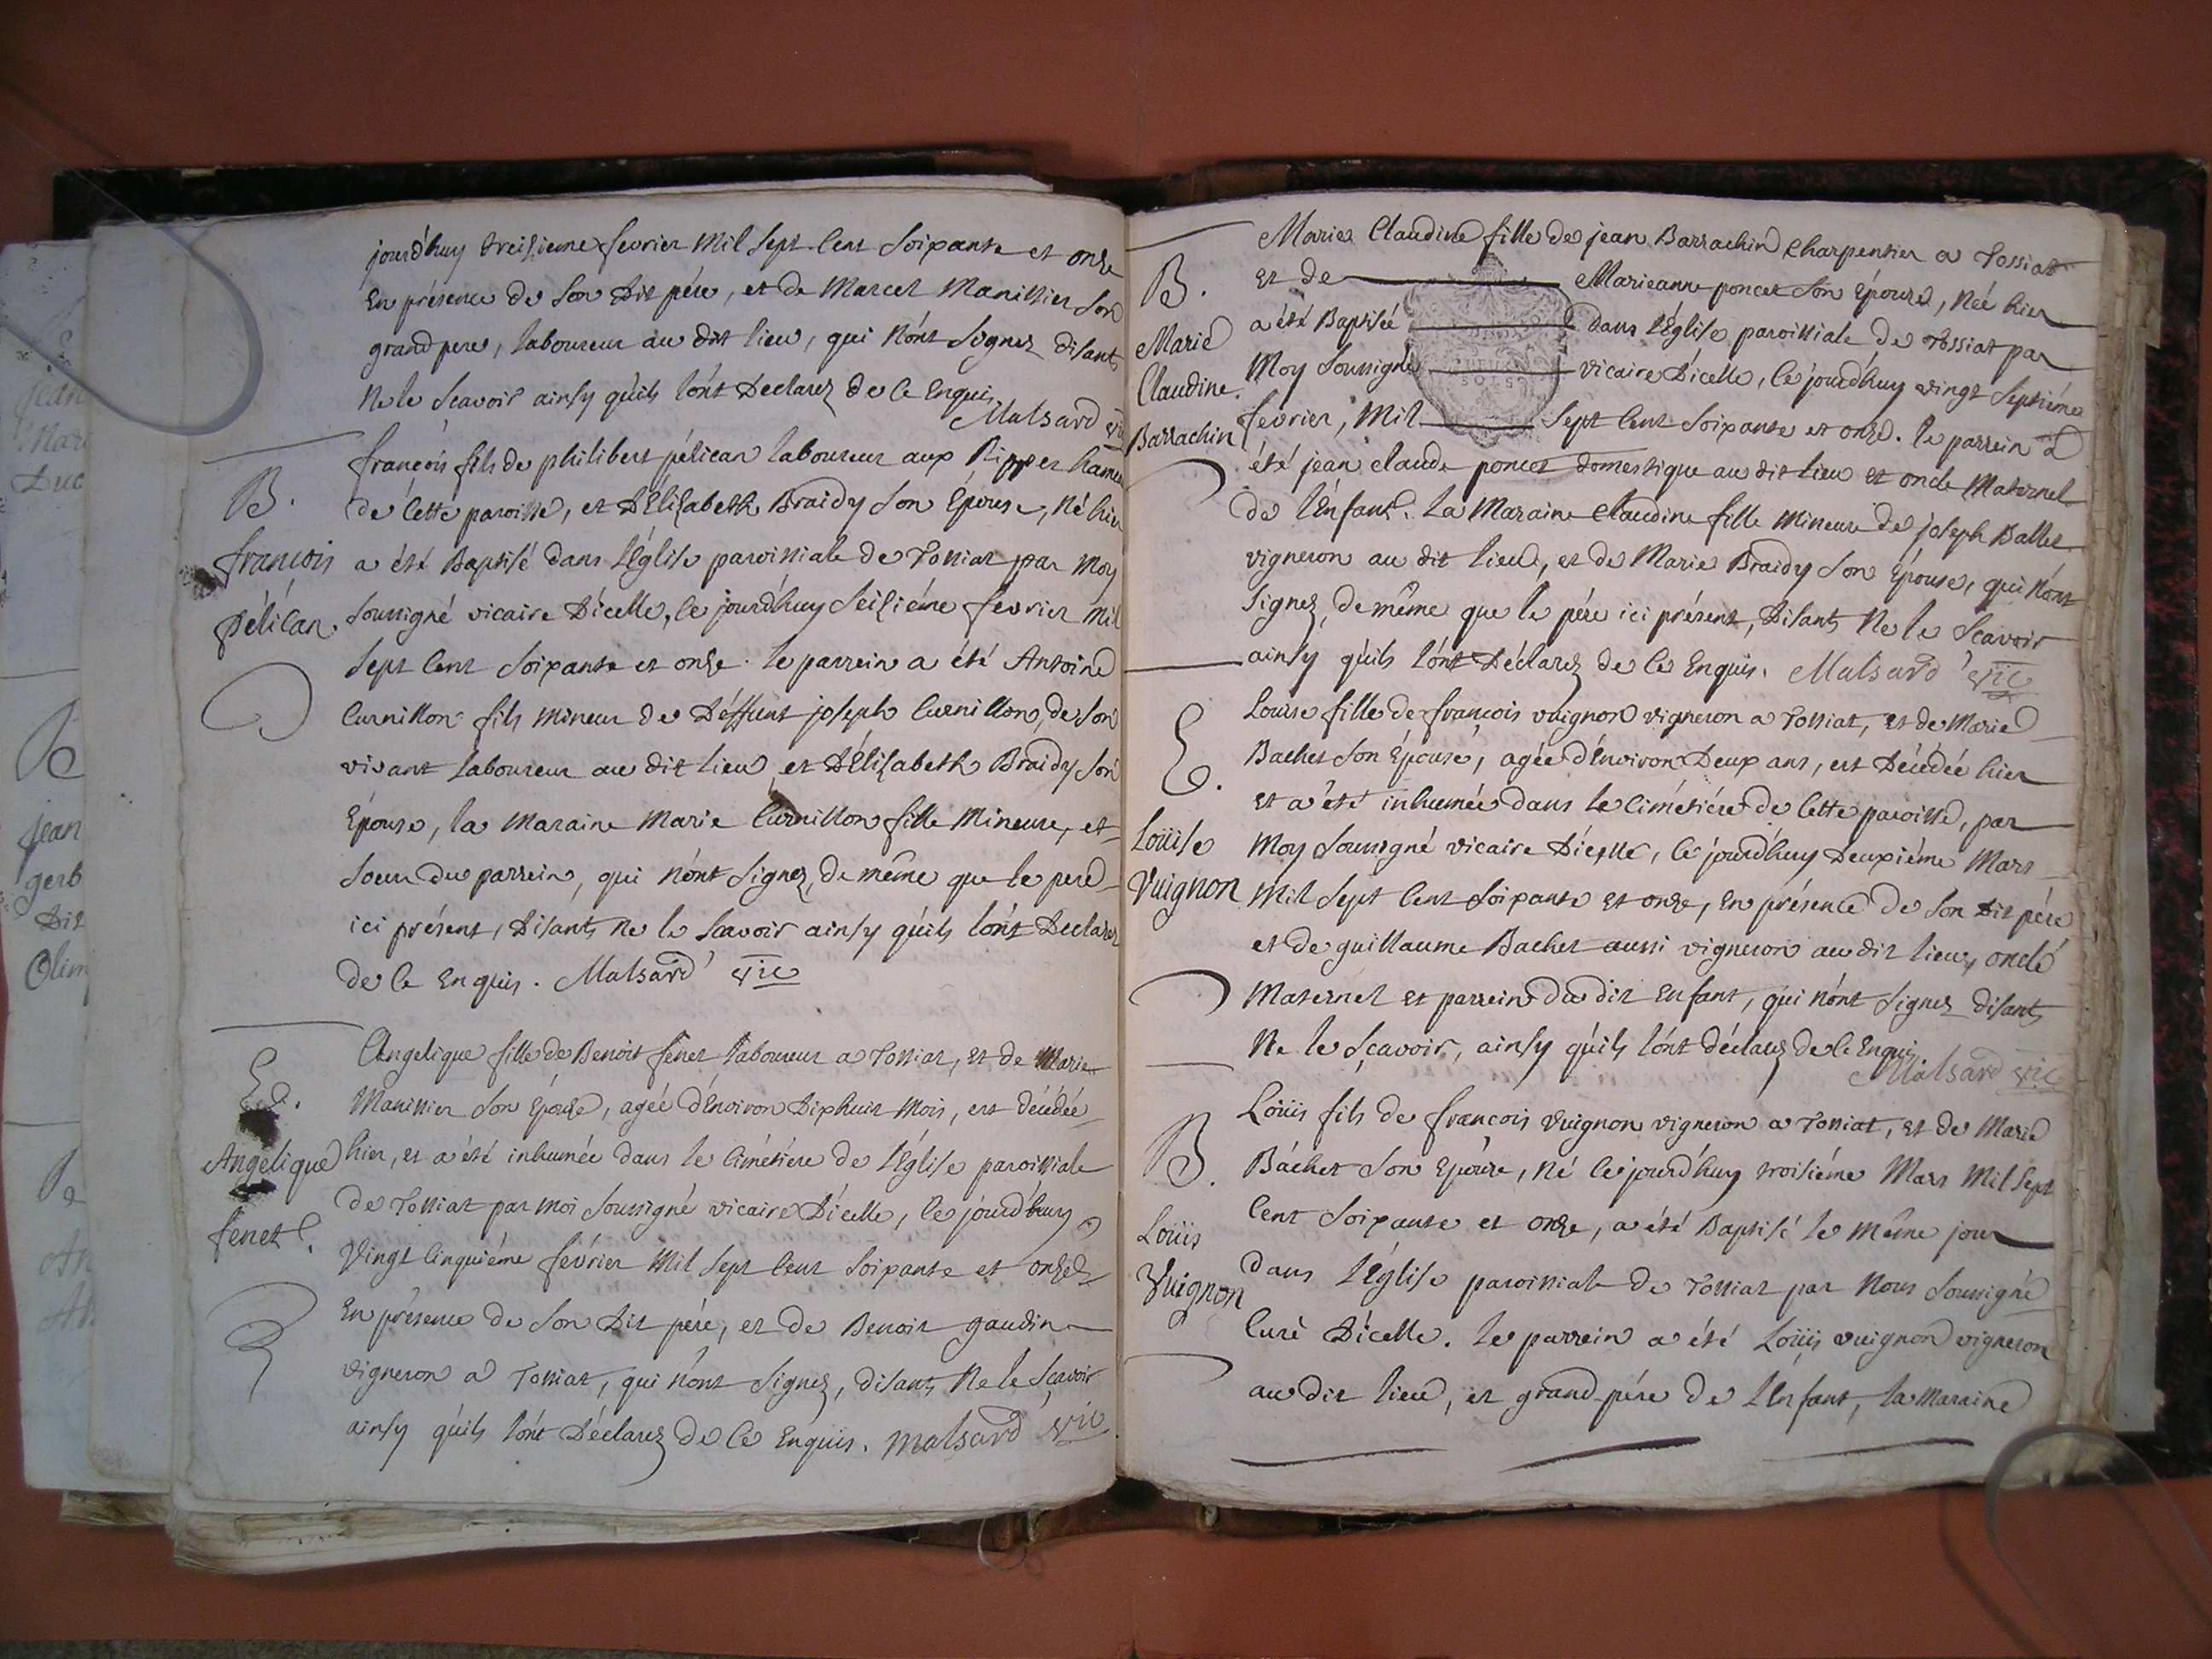 jourd'huy treisieme fevrier mil sept cent soixante et onze
en présence de son dit pére, et de Marcel Manissier son
grand pere, laboureur au dit lieu, qui n'ónt signez disants
ne le scavoir ainsy qu'ils l'ónt declarez de ce enquis
Malsard vic
B.
françois
pélican.
françois fils de philibert pélican laboureur aux Rippes hameau
de cette paroisse, et d'Élizabeth Braidy son épouse, né hier
a été Baptisé dans l'Église paroissiale de Tossiat par moy
soussigné vicaire d'icelle, ce jourd'huy seiziéme fevrier mil
sept cent soixante et onze. le parrein a été Antoine
Curnillon fils mineur de déffunt joseph Curnillon, de son
vivant laboureur au dit lieu et d'Élizabeth Braidy son
épouse, la maraine marie Curnillon fille mineure, et
soeur du parrein, qui n'ónt signez, de même que le pere
ici présent, disants ne le scavoir ainsy qu'ils l'ónt declarez
de ce enquis. Malsard vic
E.
Angelique
fenet.
Angelique fille de Benoit fenet laboureur a Tossiat, et de Marie
Manissier son épouse, agée d'Environ dixhuit mois, est décédée
hier, et a été inhumée dans le cimétiére de l'Église paroissiale
de Tossiat par moi soussigné vicaire d'icelle, ce jourd'huy
vingt cinquiéme février mil sept cent soixante et onze
en présence de son dit pére, et de Benoit gaudin
vigneron a Tossiat, qui n'ónt signez, disants ne le scavoir
ainsy qu'ils l'ónt déclarez de ce enquis. Malsard vic
B.
Marie
Claudine.
Barrachin
Marie Claudine fille de jean Barrachin charpentier a Tossiat
et de Marieanne poncet son épouse, née hier
a été Baptisée dans l'Église paroissiale de Tossiat par
moy soussigné vicaire d'icelle, ce jourd'huy vingt septiéme
fevrier, mil sept cent soixante et onze. le parrein a
été jean claude poncet domestique au dit lieu et oncle maternel
de l'Enfant. La Maraine Claudine fille mineure de joseph Ballet
vigneron au dit lieu, et de Marie Braidy son épouse, qui n'ónt
signez, de même que le pére ici présent, disants ne le scavoir
ainsy qu'ils l'ónt déclarez de ce enquis. Malsard vic
E.
Loüise
Vuignon
Louise fille de francois vuignon vigneron a Tossiat, et de Marie
Bachet son épouse, agée d'Environ deux ans, est décédée hier
et a été inhumée dans le cimétiére de cette paroisse, par
moy soussigné vicaire d'icelle, ce jourd'huy deuxiéme mars
mil sept cent soixante et onze, en présence de son dit pére
et de guillaume Bachet aussi vigneron au dit lieu, oncle
maternel et parrein du dit enfant, qui n'ónt signez disants
ne le sçavoir, ainsy qu'ils l'ónt déclarez de ce enquis.
Malsard vic
B.
Loüis
Vuignon
Loüis fils de francois vuignon vigneron a Tossiat, et de Marie
Báchet son épouse, né ce jourd'huy troisiéme Mars mil sept
cent soixante et onze, a été Baptisé le même jour
dans l'Église paroissiale de Tossiat par nous soussigné
curé d'icelle. le parrein a été Loüis vuignon vigneron
au dit lieu, et grand-pére de l'Enfant, la Maraine